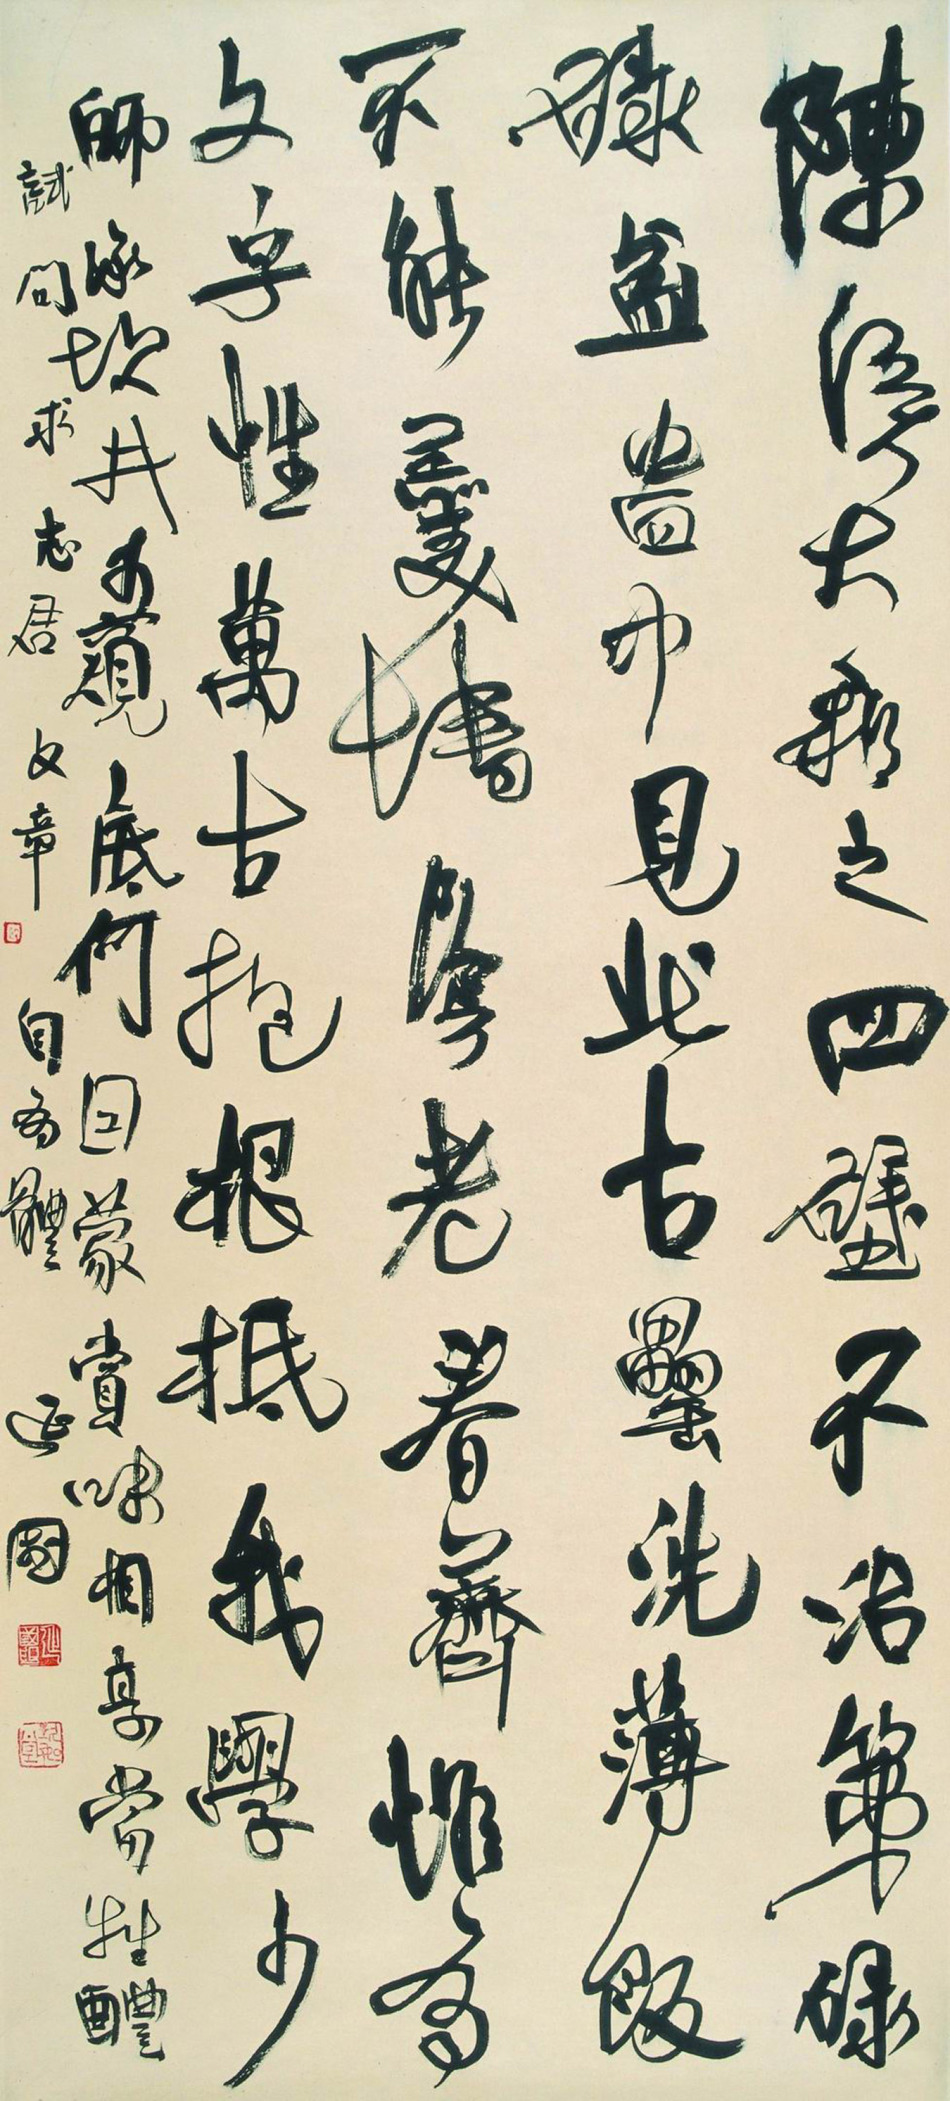 陳侯大雅之四壁不治第碌
碌盆盎中見此古罍洗薄飯
不能羹墻陰老春薺惟有
文字性萬古抱根抵我學少
師承坎井可窺底何因蒙賞味相享當牲醴
試問求志君文章自有體